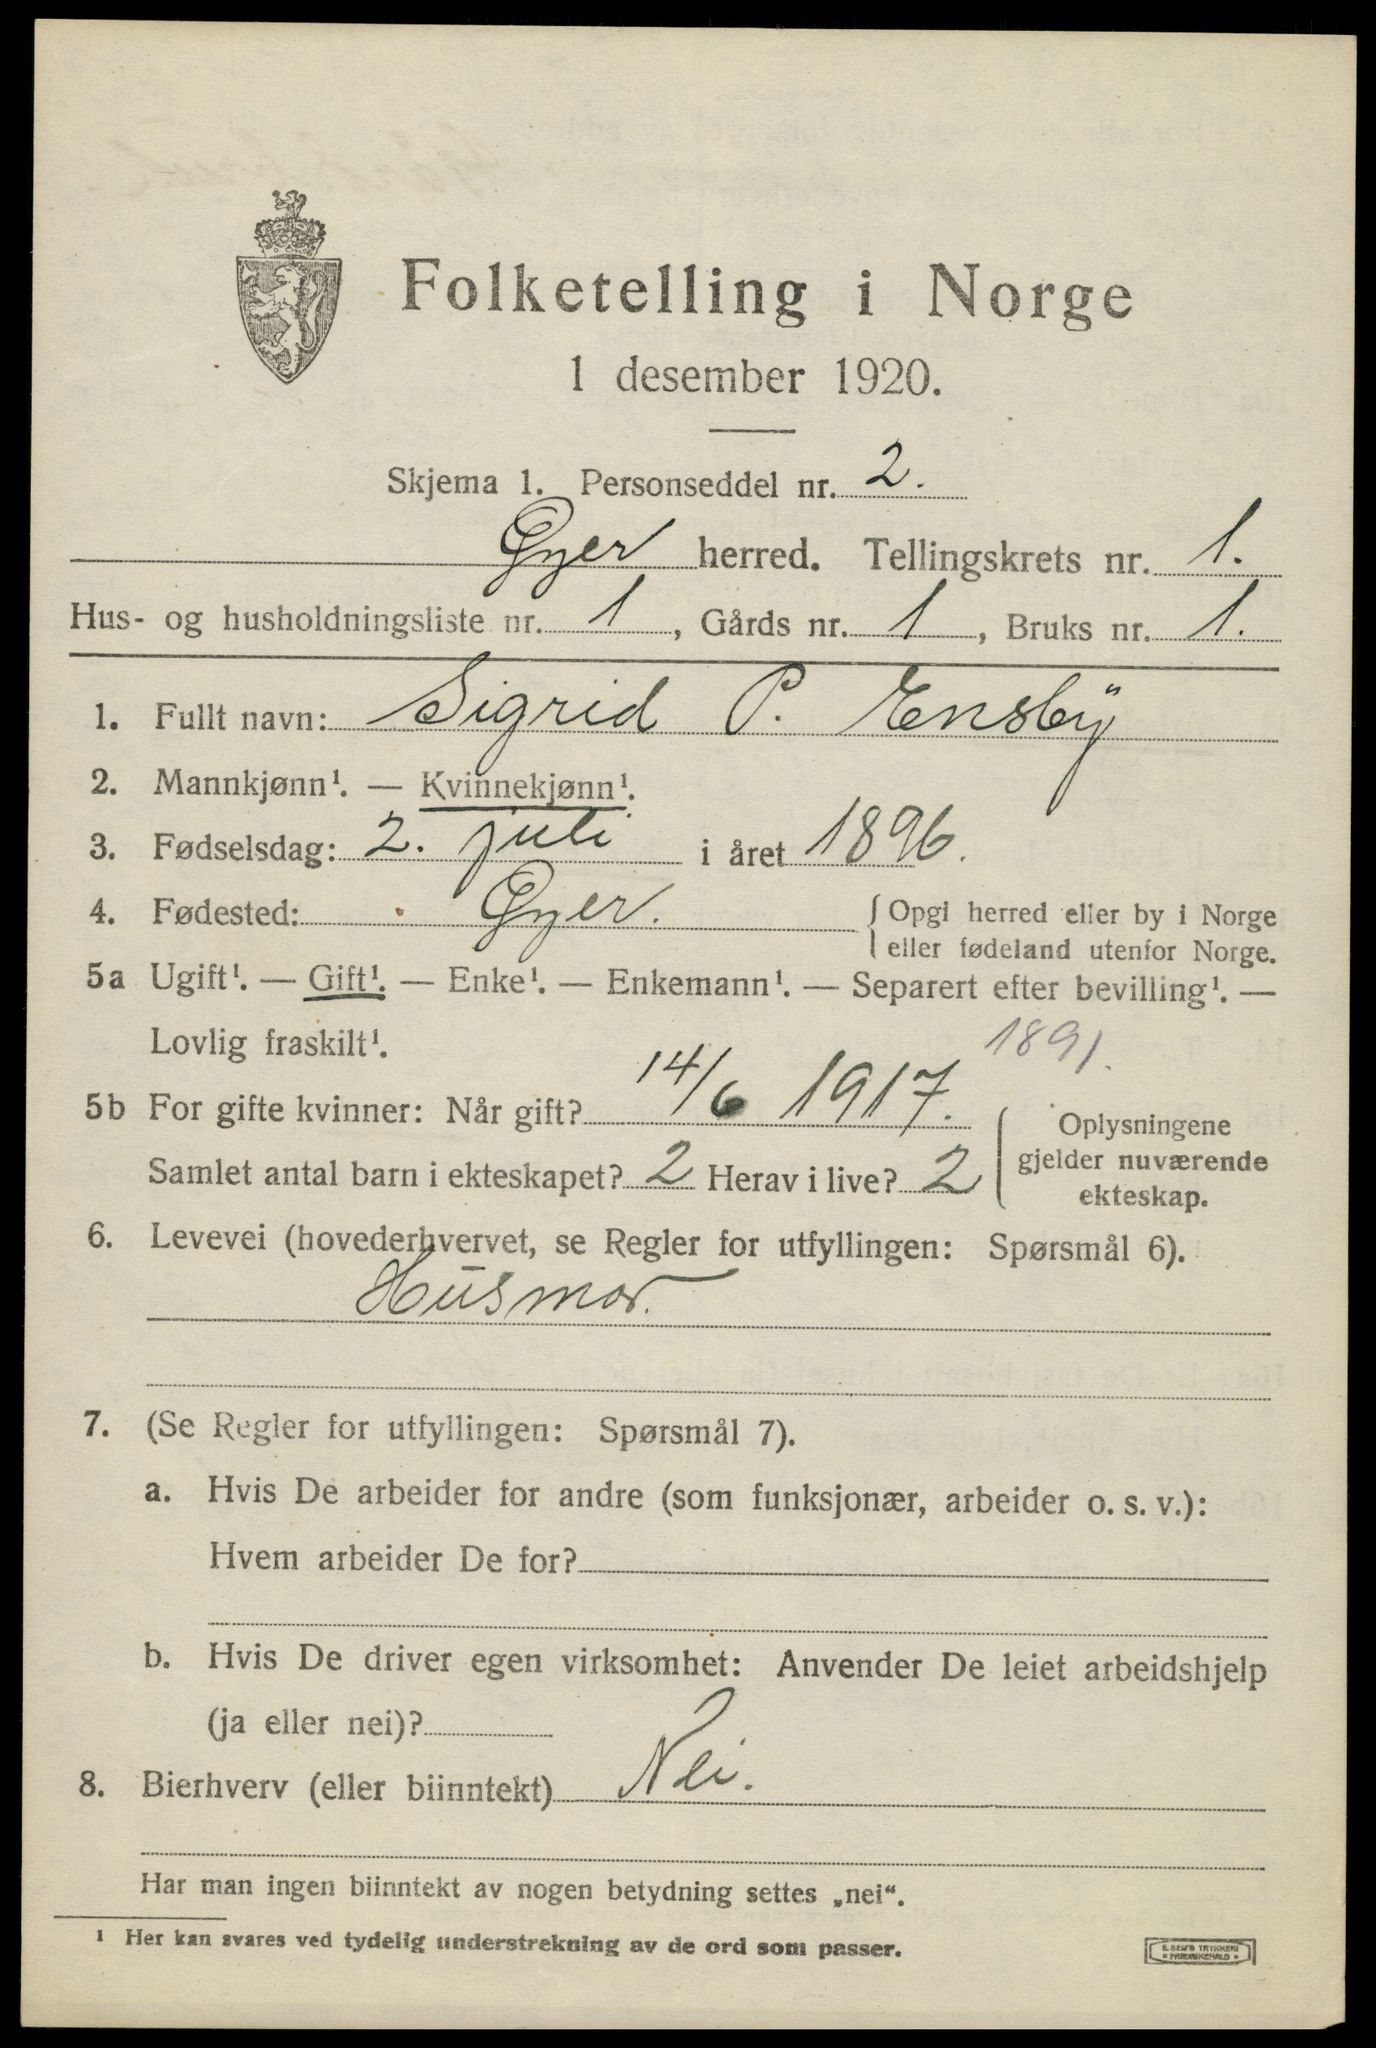 Folketelling i Norge
1 desember 1920.
Skjema 1. Personseddel nr. 2.
Øyer herred. Tellingskrets nr. 1.
Hus- og husholdningsliste nr. 1, Gårds nr. 1, Bruks nr. 1.
1. Fullt navn: Sigrid P. Ensbÿ
2. Mannkjønn¹. — Kvinnekjønn¹.
3. Fødselsdag: 2. juli i året 1896.
4. Fødested: Øyer. { Opgi herred eller by i Norge
eller fødeland utenfor Norge.
5a Ugift¹. — Gift¹. — Enke¹. — Enkemann¹. — Separert efter bevilling¹. —
Lovlig fraskilt¹. 1891.
5b For gifte kvinner: Når gift? 14/6 1917. Oplysningene
gjelder nuværende
Samlet antal barn i ekteskapet? 2 Herav i live? 2 ekteskap.
6. Levevei (hovederhvervet, se Regler for utfyllingen: Spørsmål 6).
Husmor.
7. (Se Regler for utfyllingen: Spørsmål 7).
a. Hvis De arbeider for andre (som funksjonær, arbeider o. s. v.):
Hvem arbeider De for?
b. Hvis De driver egen virksomhet: Anvender De leiet arbeidshjelp
(ja eller nei)?
8. Bierhverv (eller biinntekt) Nei.
Har man ingen biinntekt av nogen betydning settes „nei“.
¹ Her kan svares ved tydelig understrekning av de ord som passer.
E. SEM'S TRYKKERI
FREDRIKSHALD